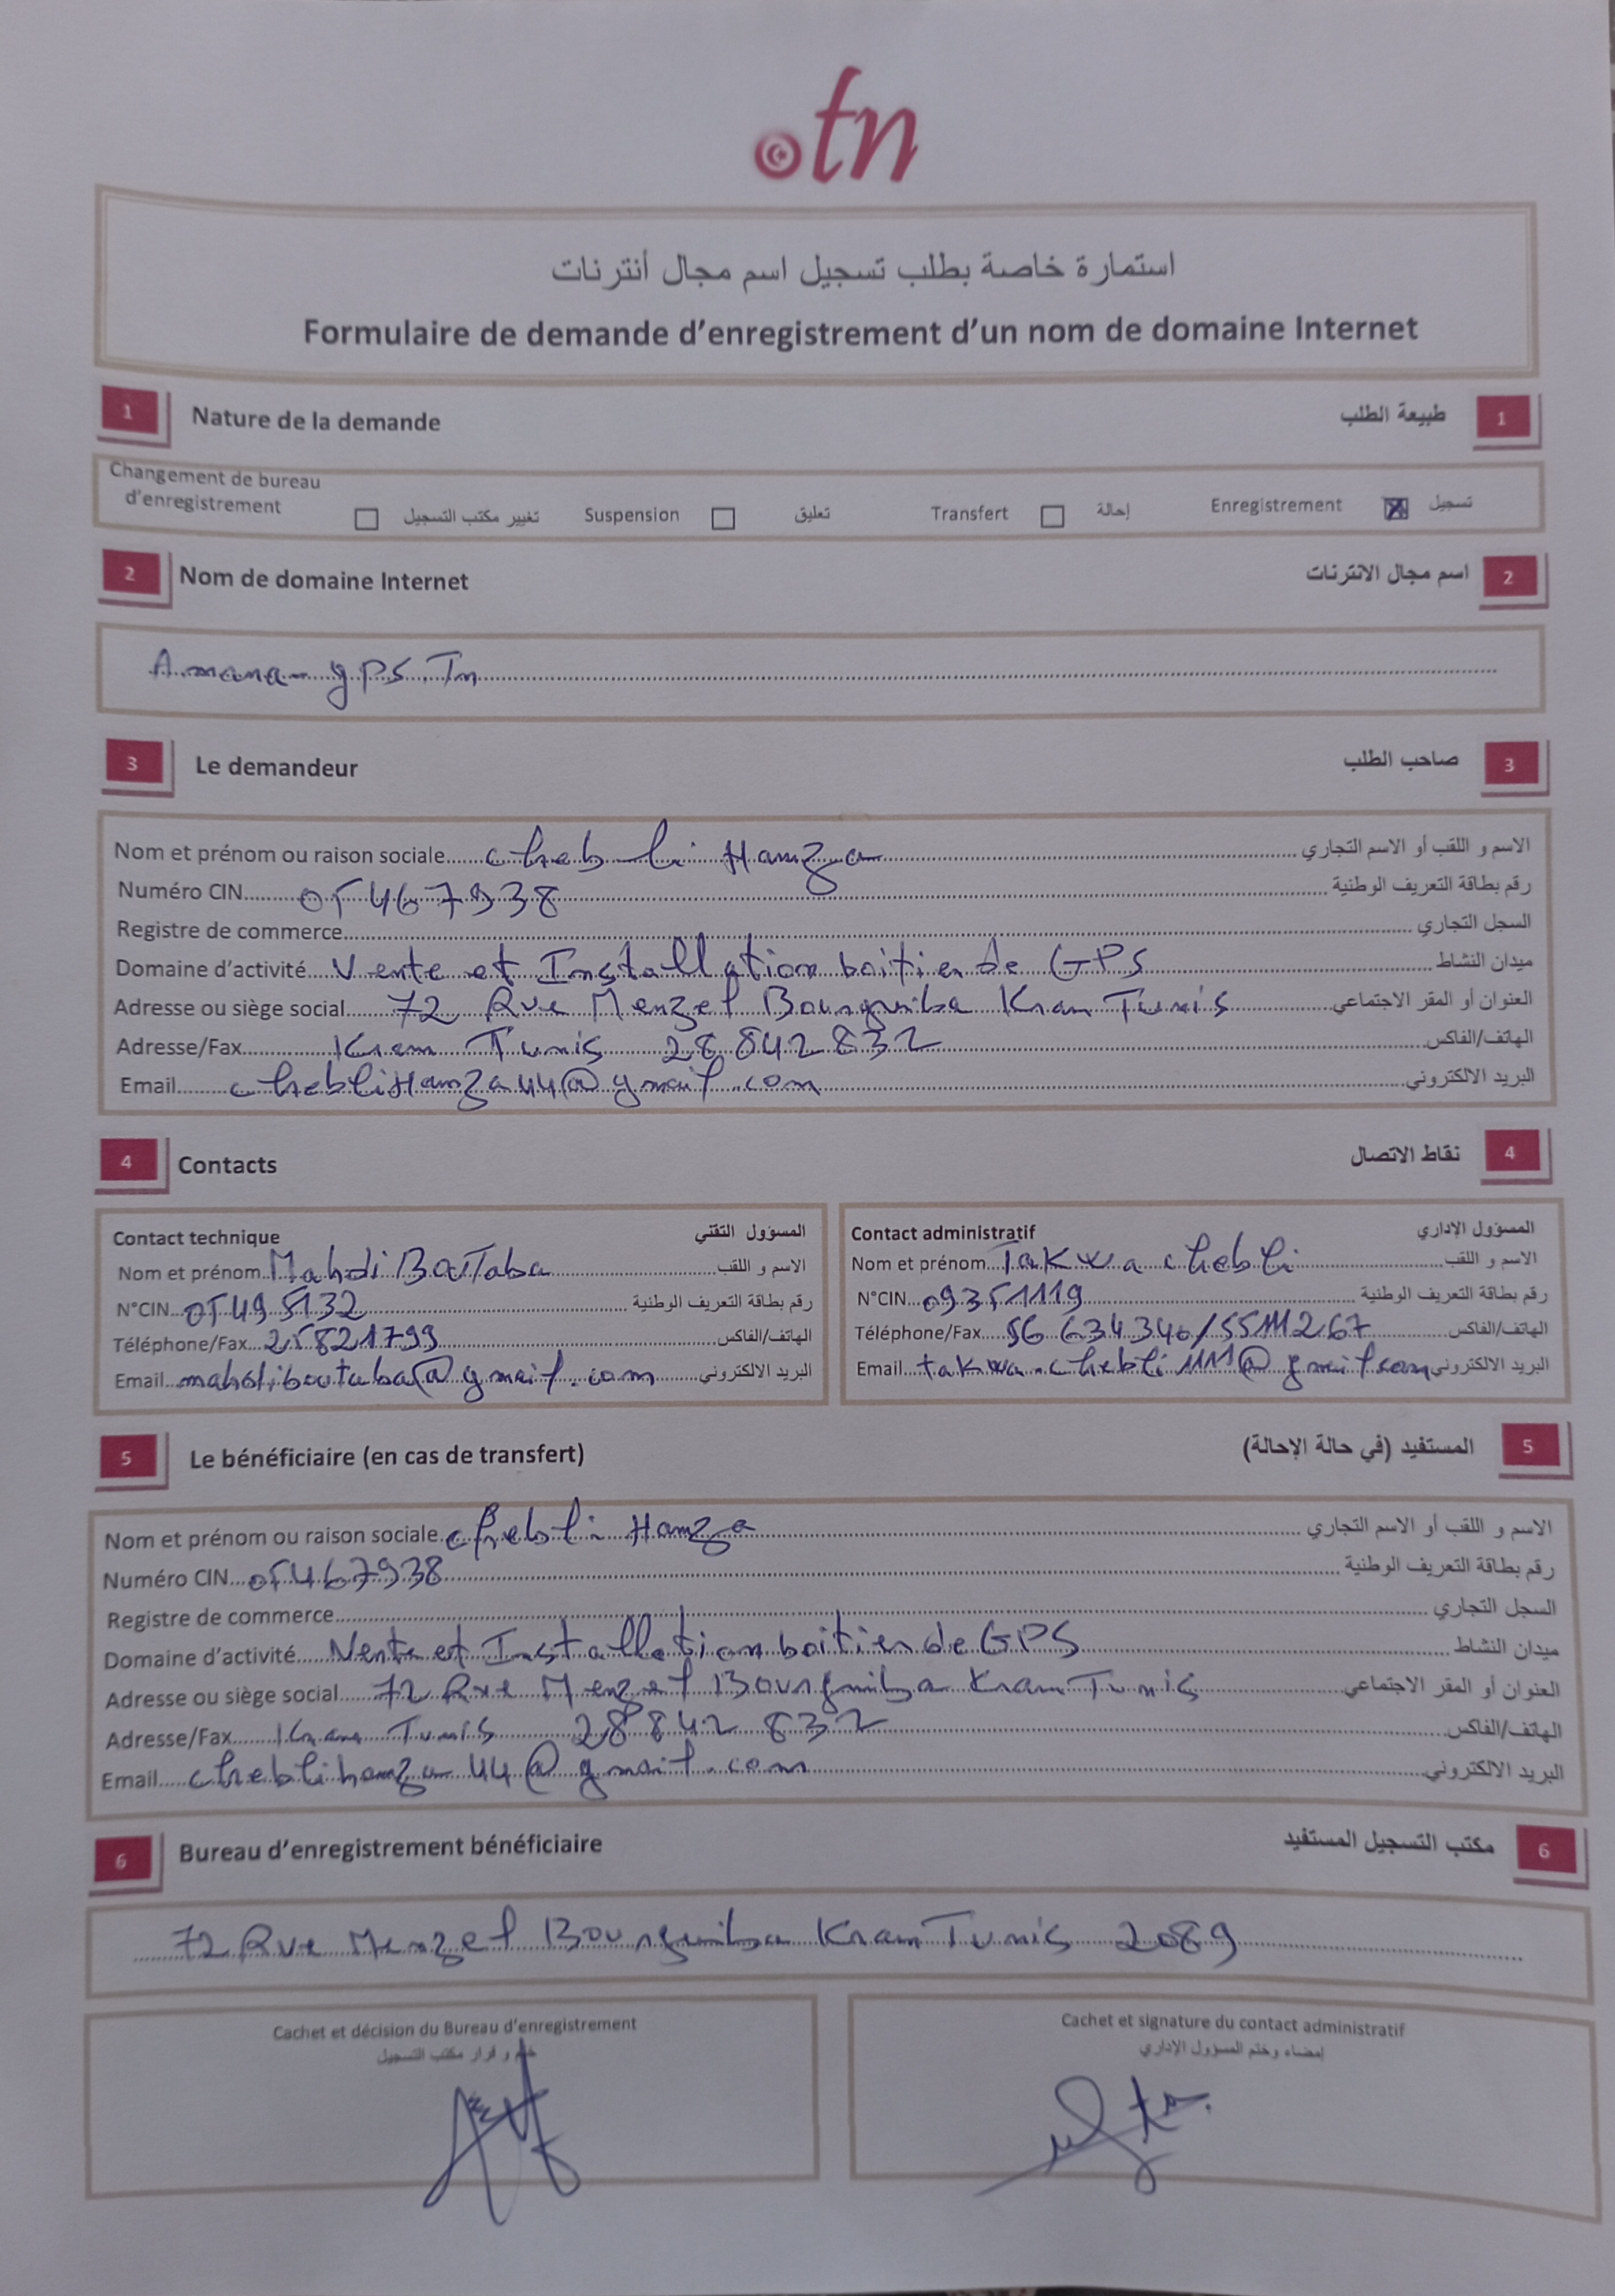 .tn
استمارة خاصة بطلب تسجيل اسم مجال أنترنات
Formulaire de demande d'enregistrement d'un nom de domaine Internet
1 Nature de la demande طبيعة الطلب 1
Changement de bureau d'enregistrement ☐ تغيير مكتب التسجيل Suspension ☐ تعليق Transfert ☐ إحالة Enregistrement ☒ تسجيل
2 Nom de domaine Internet اسم مجال الانترنات 2
Amana-gps.Tn
3 Le demandeur صاحب الطلب 3
Nom et prénom ou raison sociale chebli Hamza الاسم و اللقب أو الاسم التجاري
Numéro CIN رقم بطاقة التعريف الوطنية
Registre de commerce السجل التجاري
Domaine d'activité Vente et Installation boitier de GPS ميدان النشاط
Adresse ou siège social 72 Rue Menzel Bourguiba Kram Tunis العنوان أو المقر الاجتماعي
Adresse/Fax Kram Tunis 28 842 832 الهاتف/الفاكس
Email chebliHamza44@gmail.com البريد الالكتروني
4 Contacts نقاط الاتصال 4
Contact technique المسؤول التقني
Nom et prénom Mahdi BouTaba الاسم و اللقب
N°CIN رقم بطاقة التعريف الوطنية
Téléphone/Fax 25821799 الهاتف/الفاكس
Email mahdiboutaba@gmail.com البريد الالكتروني
Contact administratif المسؤول الإداري
Nom et prénom Takwa chebli الاسم و اللقب
N°CIN رقم بطاقة التعريف الوطنية
Téléphone/Fax الهاتف/الفاكس
Email takwa.chebli1111@gmail.com البريد الالكتروني
5 Le bénéficiaire (en cas de transfert) المستفيد (في حالة الإحالة) 5
Nom et prénom ou raison sociale chebli Hamza الاسم و اللقب أو الاسم التجاري
Numéro CIN رقم بطاقة التعريف الوطنية
Registre de commerce السجل التجاري
Domaine d'activité Vente et Installation boitier de GPS ميدان النشاط
Adresse ou siège social 72 Rue Menzel Bourguiba Kram Tunis العنوان أو المقر الاجتماعي
Adresse/Fax Kram Tunis 28 842 832 الهاتف/الفاكس
Email cheblihamza44@gmail.com البريد الالكتروني
6 Bureau d'enregistrement bénéficiaire مكتب التسجيل المستفيد 6
72 Rue Menzel Bourguiba Kram Tunis 2089
Cachet et décision du Bureau d'enregistrement
ختم و قرار مكتب التسجيل
Cachet et signature du contact administratif
إمضاء وختم المسؤول الإداري